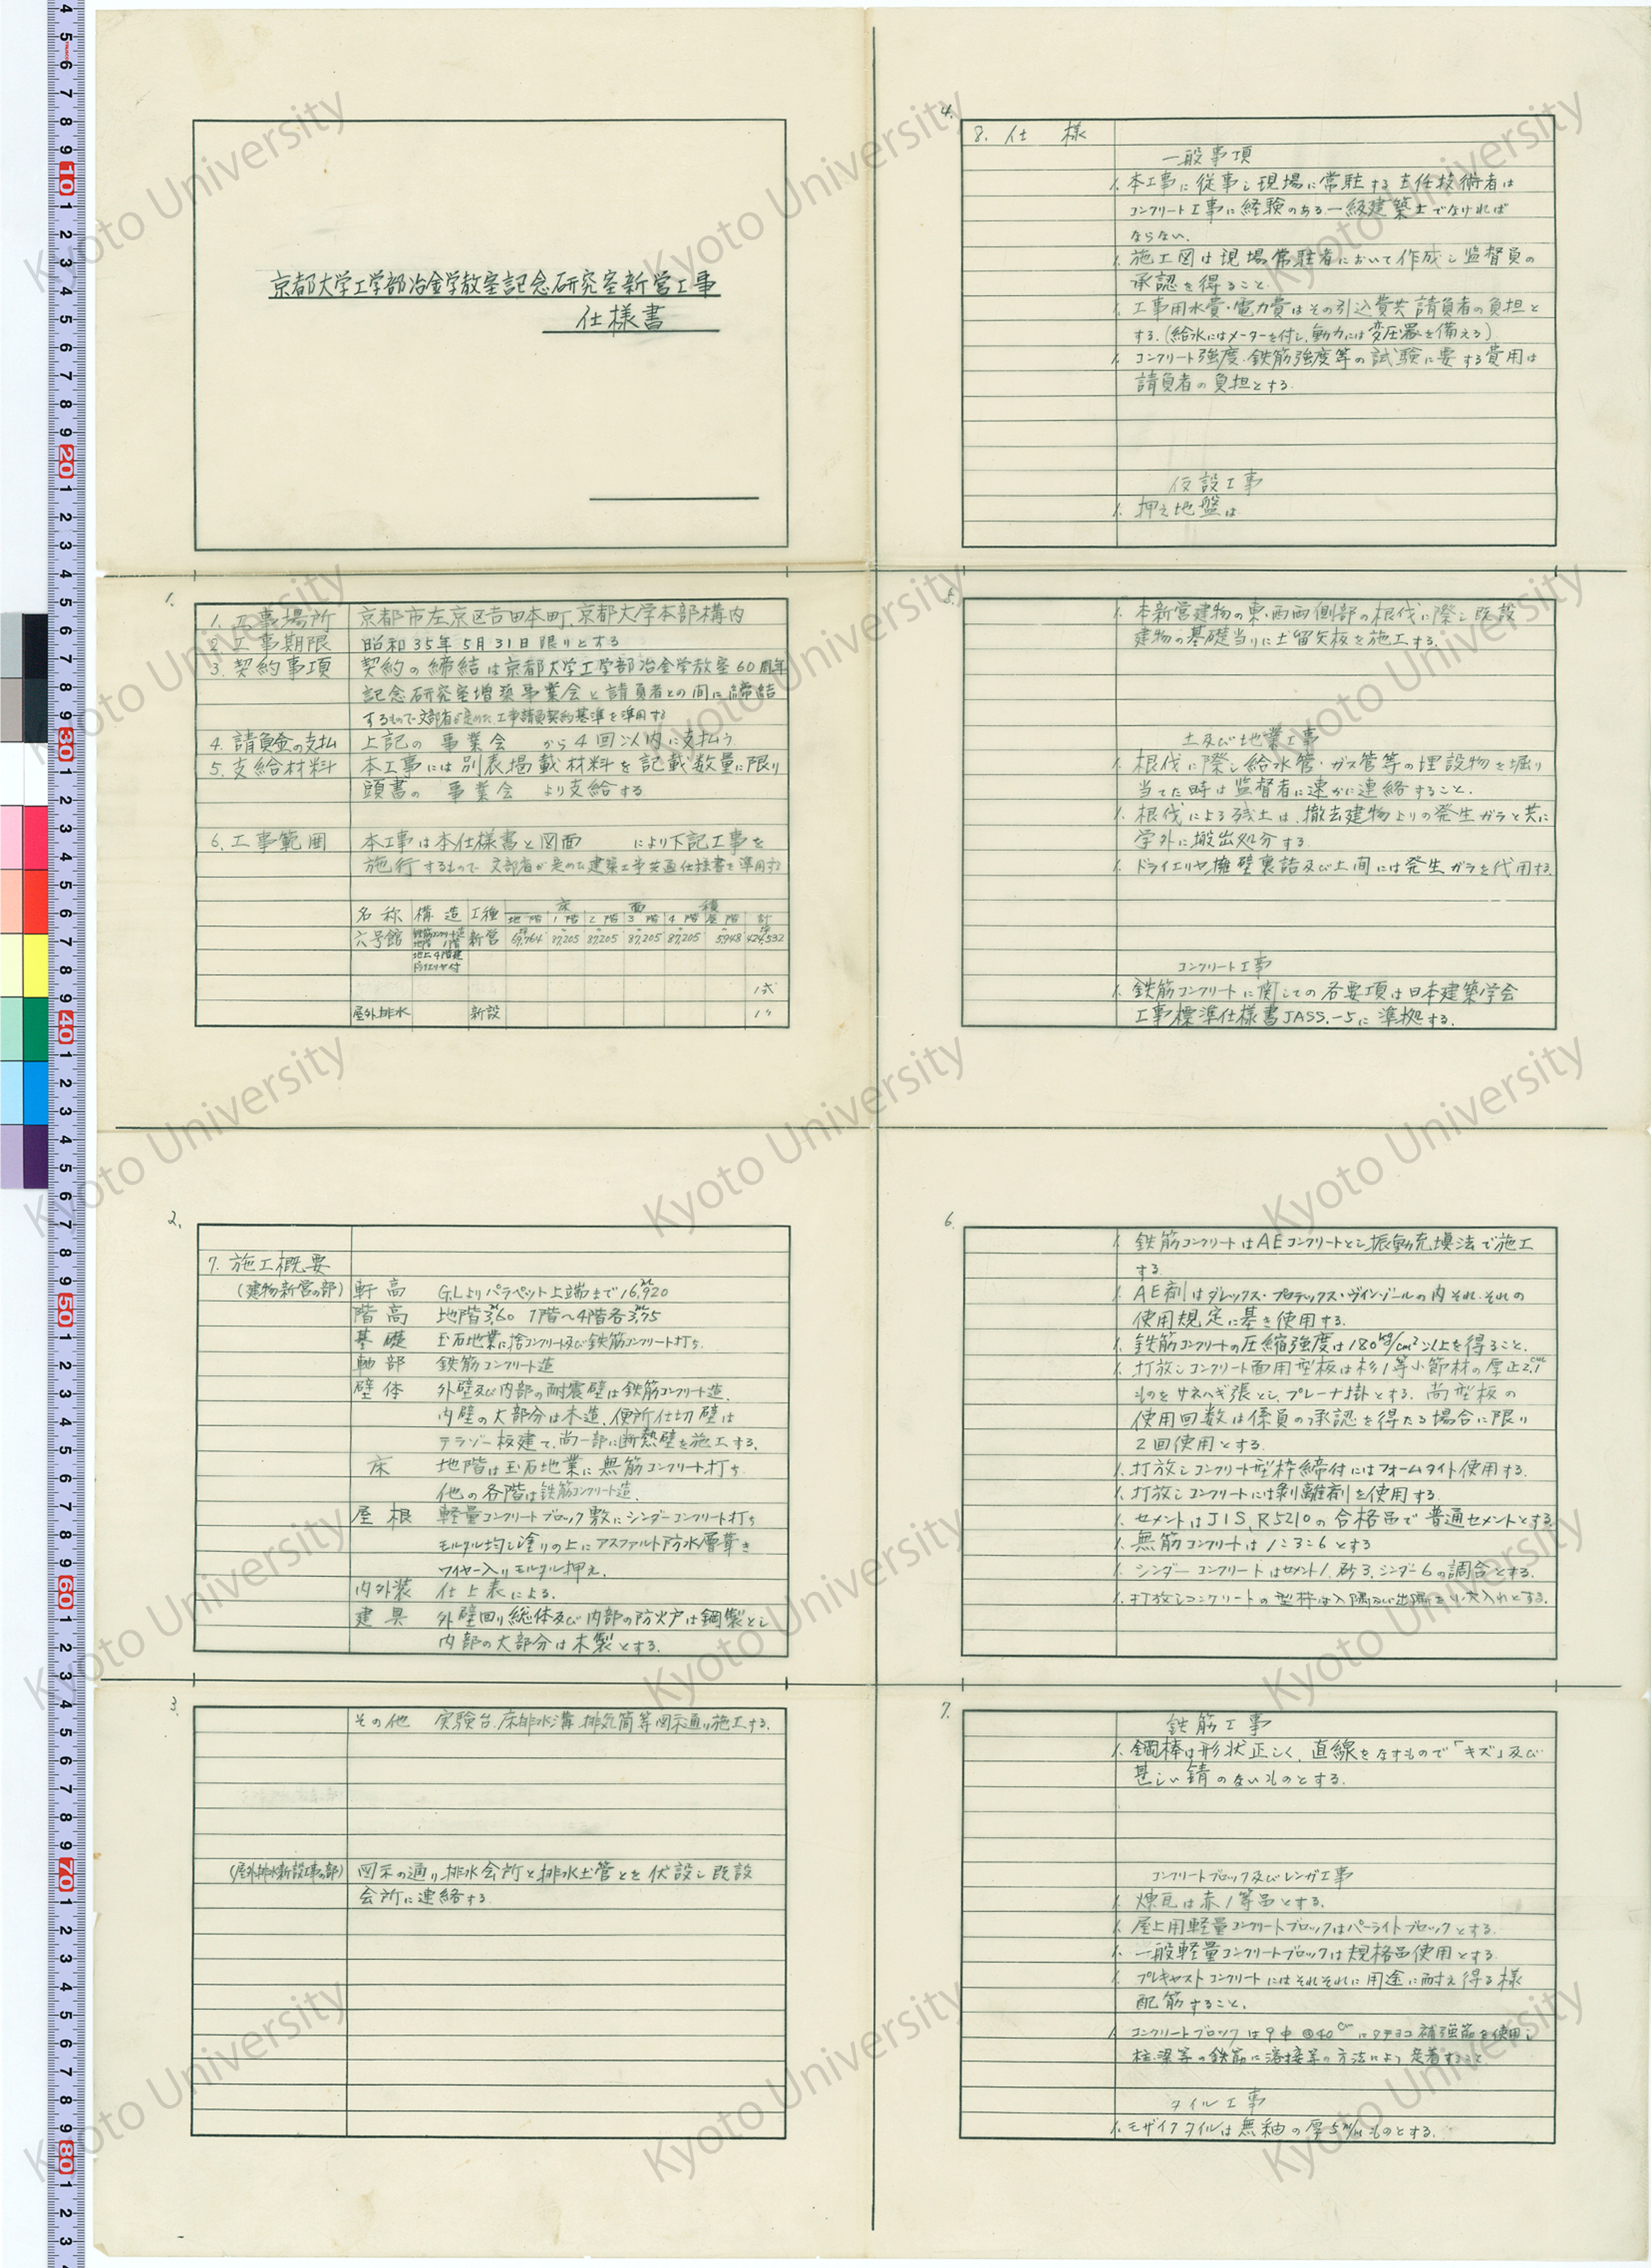 京都大学工学部冶金学教室記念研究室新営工事
仕様書
1.
1. 工事場所 京都市左京区吉田本町、京都大学本部構内
2. 工事期限 昭和35年5月31日限りとする
3. 契約事項 契約の締結は京都大学工学部冶金学教室60周年
記念研究室増築事業会と請負者との間に締結
するもので文部省が定めた工事請負契約基準を準用する
4. 請負金の支払 上記の 事業会 から4回以内に支払う
5. 支給材料 本工事には別表掲載材料を記載数量に限り
頭書の 事業会 より支給する
6. 工事範囲 本工事は本仕様書と図面 により下記工事を
施行するもので 文部省が定めた建築工事共通仕様書を準用する
床 面 積
名称 構造 工種 地階 1階 2階 3階 4階 屋階 計
六号館 鉄筋コンクリート造 新営 69,764 87,205 87,205 87,205 87,205 5,948 424,532
地階 1階
地上4階建
ドライエリヤ付
1式
屋外排水 新設 1〃
2.
7. 施工概要
(建物新営の部) 軒高 G.Lよりパラペット上端まで16,920
階高 地階3,60 1階〜4階各3,75
基礎 玉石地業に捨コンクリート及び鉄筋コンクリート打ち
軸部 鉄筋コンクリート造
壁体 外壁及び内部の耐震壁は鉄筋コンクリート造、
内壁の大部分は木造、便所仕切壁は
テラゾー板建て、尚一部に断熱壁を施工する。
床 地階は玉石地業に無筋コンクリート打ち
他の各階は鉄筋コンクリート造、
屋根 軽量コンクリートブロック敷にシンダーコンクリート打ち
モルタル均し塗りの上にアスファルト防水層葺き
ワイヤー入りモルタル押え、
内外装 仕上表による。
建具 外壁回り総体及び内部の防火戸は鋼製とし
内部の大部分は木製とする。
3.
その他 実験台、床排水溝、排気筒等図示通り施工する。
(屋外排水新設工事の部) 図示の通り、排水会所と排水土管とを伏設し既設
会所に連絡する
4.
8. 仕様
一般事項
1. 本工事に従事し現場に常駐する主任技術者は
コンクリート工事に経験のある一級建築士でなければ
ならない。
1. 施工図は現場常駐者において作成し監督員の
承認を得ること
1. 工事用水費・電力費はその引込費共請負者の負担と
する。(給水にはメーターを付し、動力には変圧器を備える)
1. コンクリート強度、鉄筋強度等の試験に要する費用は
請負者の負担とする。
仮設工事
1. 押え地盤は
5.
1. 本新営建物の東・西両側部の根伐に際し既設
建物の基礎当りに土留矢板を施工する。
土及び地業工事
1. 根伐に際し給水管・ガス管等の埋設物を掘り
当てた時は監督者に速かに連絡すること。
1. 根伐による残土は、撤去建物よりの発生ガラと共に
学外に搬出処分する
1. ドライエリヤ擁壁裏詰及び土間には発生ガラを代用する。
コンクリート工事
1. 鉄筋コンクリートに関しての各要項は日本建築学会
工事標準仕様書JASS.-5に準拠する。
6.
1. 鉄筋コンクリートはAEコンクリートとし振動充填法で施工
する。
1. AE剤はダレックス・プロテックス・ヴィンゾールの内それ、それの
使用規定に基き使用する。
1. 鉄筋コンクリートの圧縮強度は180kg/cm²以上を得ること。
1. 打放しコンクリート面用型板は杉1等小節材の厚正2.1cm
ものをサネハギ張とし、プレーナ掛とする。尚型板の
使用回数は係員の承認を得たる場合に限り
2回使用とする
1. 打放しコンクリート型枠締付にはフォームタイト使用する。
1. 打放しコンクリートには剥離剤を使用する。
1. セメントはJIS、R5210の合格品で普通セメントとする
1. 無筋コンクリートは1:3:6とする
1. シンダーコンクリートはセメント1、砂3、シンダー6の調合とする。
1. 打放しコンクリートの型枠は入隅及び出隅とも大入れとする。
7.
鉄筋工事
1. 鋼棒は形状正しく、直線をなすもので「キズ」及び
甚しい錆のないものとする。
コンクリートブロック及びレンガ工事
1. 煉瓦は赤1等品とする。
1. 屋上用軽量コンクリートブロックはパーライトブロックとする。
1. 一般軽量コンクリートブロックは規格品使用とする
1. プレキャストコンクリートにはそれそれに用途に耐え得る様
配筋すること。
1. コンクリートブロックは9Φ@40cmにタテヨコ補強筋を使用し
柱、梁等の鉄筋に溶接等の方法により定着すること
タイル工事
1. モザイクタイルは無釉の厚5m/mものとする。